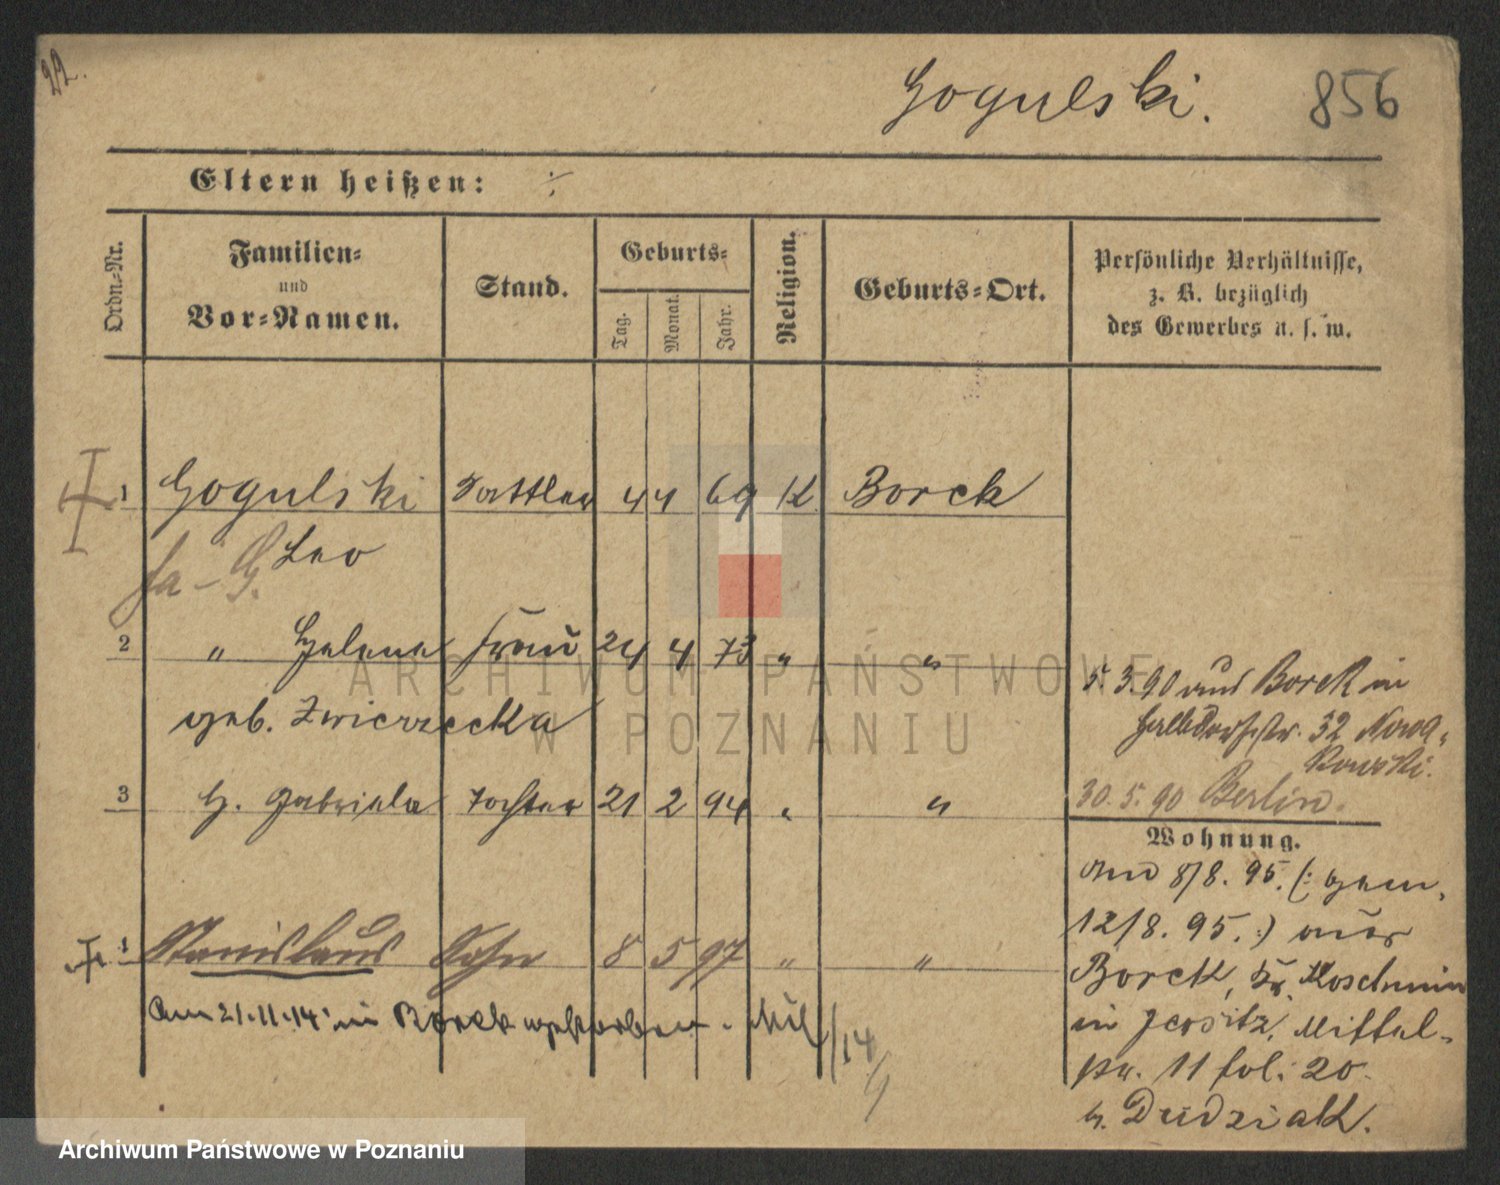 22.
Gogulski. 856
Eltern heißen: ÷
Ordn.-Nr.
Familien-
und
Vor-Namen.
Stand.
Geburts-
Tag. Monat. Jahr.
Religion.
Geburts-Ort.
Persönliche Verhältnisse,
z. B. bezüglich
des Gewerbes u. s. w.
1 Gogulski Sattler 4 4 69 K Borek
Leo
2 " Helena Frau 24 4 73 " "
geb. Zwierzecka
3 G. Gabriela Tochter 21 2 94 " "
1 Stanislaus Sohn 8 5 97 " "
Am 21.11.14 in Borek gestorben.
/14
9
5.3.90 aus Borek in
Halbdorfstr. 32 Nowa-
kowski.
30.5.90 Berlin.
Wohnung.
8/8. 95. (: gem.
12/8. 95. :) aus
Borek, Kr. Koschmin
in Jersitz, Mittel-
str. 11 fol. 20.
b. Dudziak.
ARCHIWUM PAŃSTWOWE
W POZNANIU
Archiwum Państwowe w Poznaniu